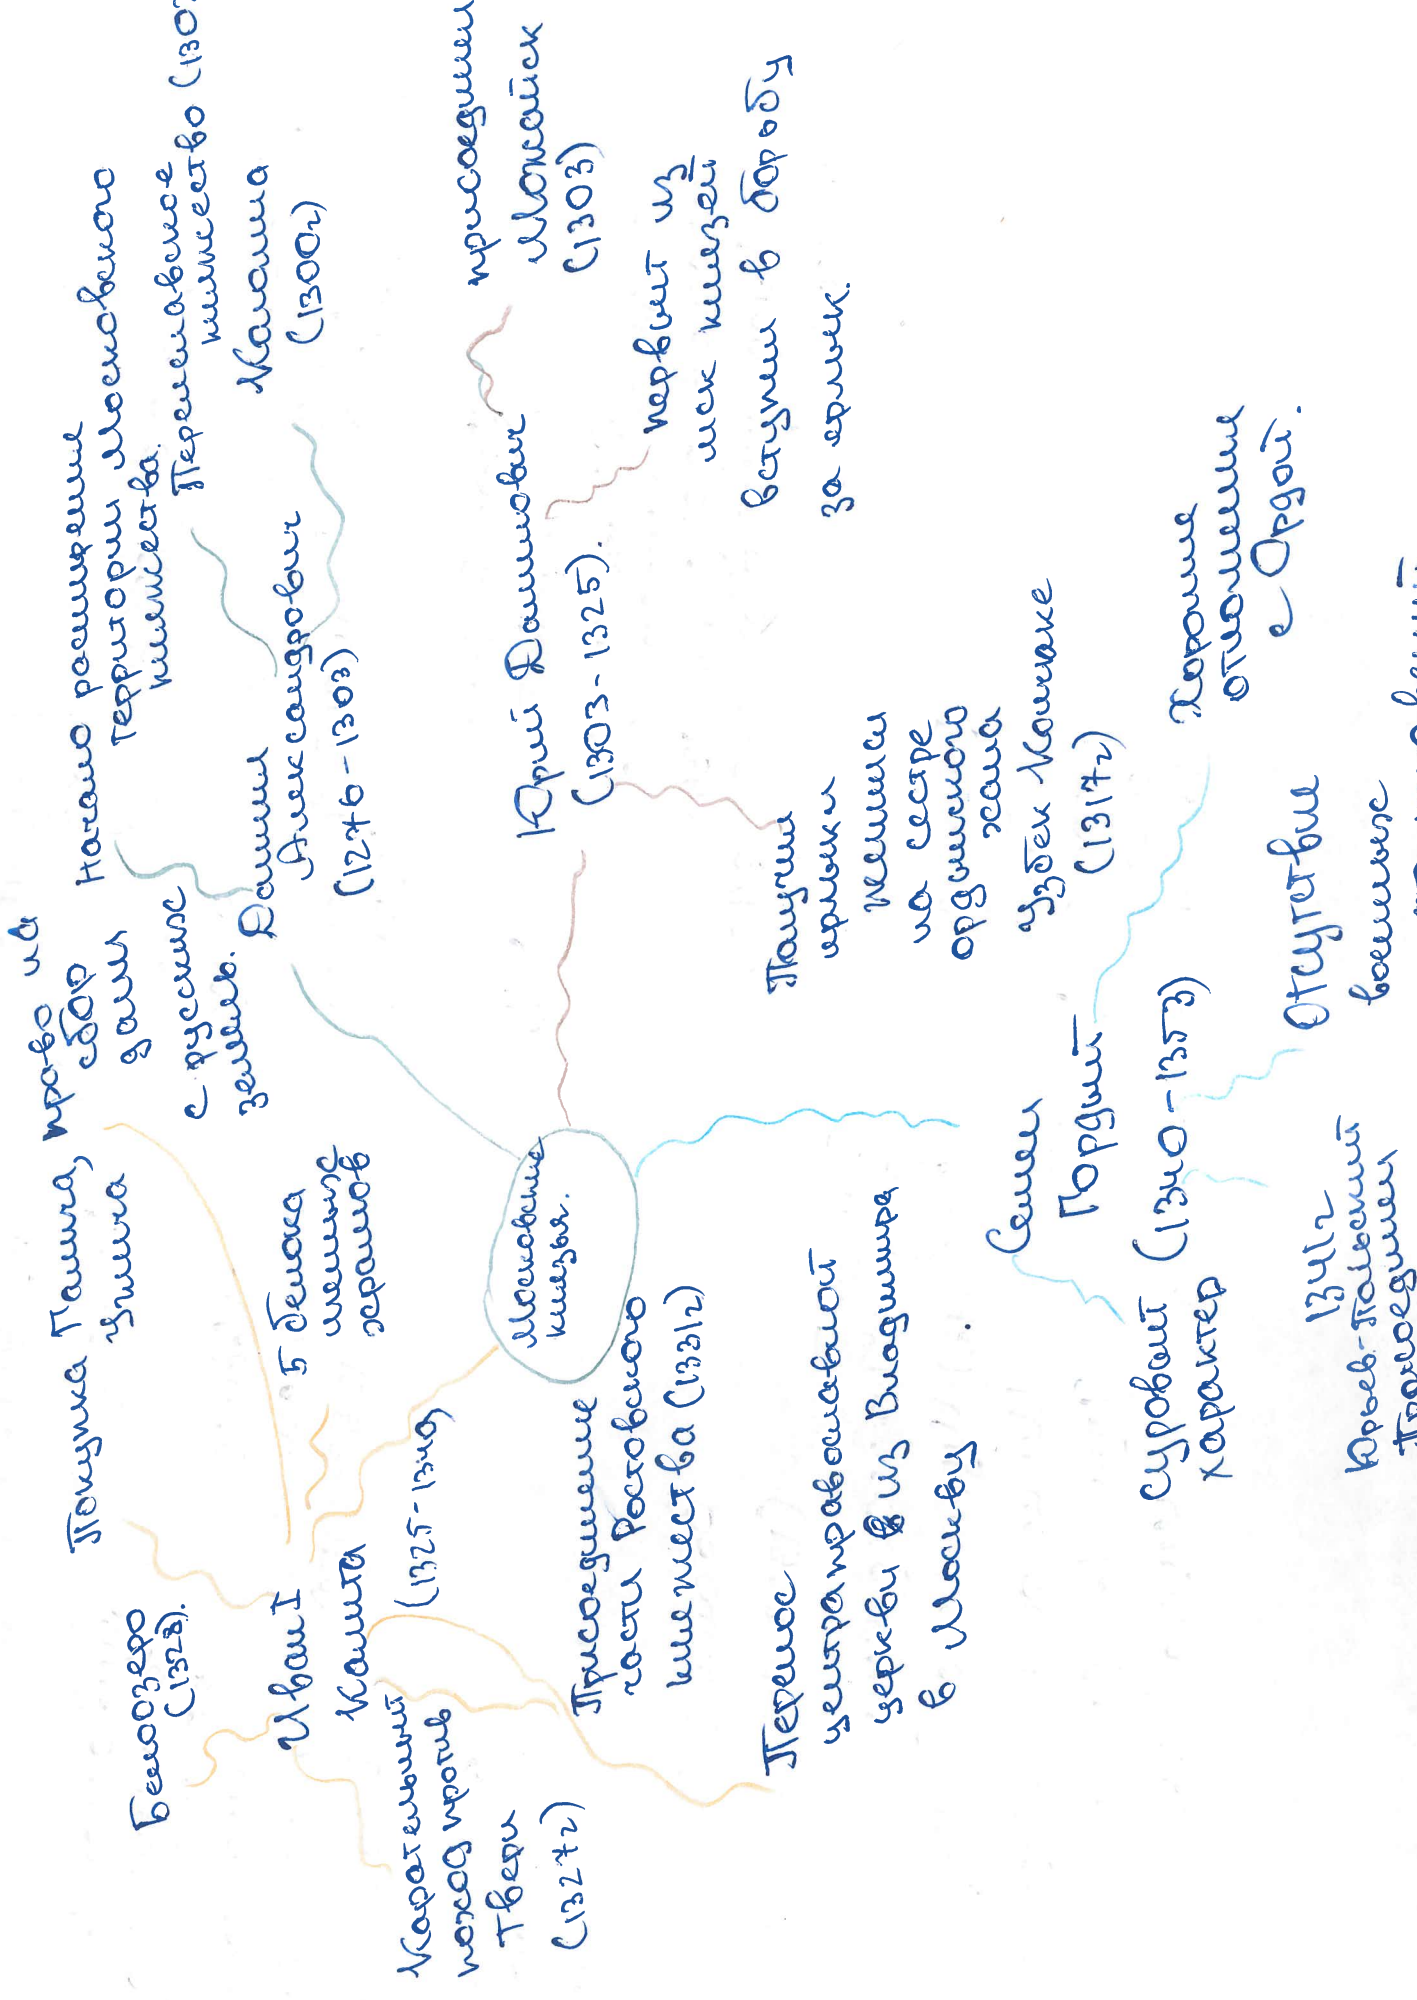 Московские
князья.
Даниил
Александрович
(1276-1303)
Начало расширения
территории Московского
княжества.
Переяславское
княжество (130
Коломна
(1300г)
Юрий Данилович
(1303-1325).
присоединил
Можайск
(1303)
первый из
мск князей
вступил в борьбу
за ярлык.
Получил
ярлык
женился
на сестре
ордынского
хана
Узбек Кончаке
(1317г)
Семен
Гордый
(1340-1353)
Хорошие
отношения
с Ордой.
Отсутствие
военных
1341г
Юрьев-Польский
Присоединил
Суровый
характер
Иван I
Калита
(1325-1340)
5 белока
менных
храмов
Покупка Галича,
Углича
право на
сбор
дани
с русских
земель.
Белоозеро
(1328).
Карательный
поход против
Твери
(1327г)
Присоединение
части Ростовского
княжества (1331г)
Перенос
центраправославной
церкви в из Владимира
в Москву